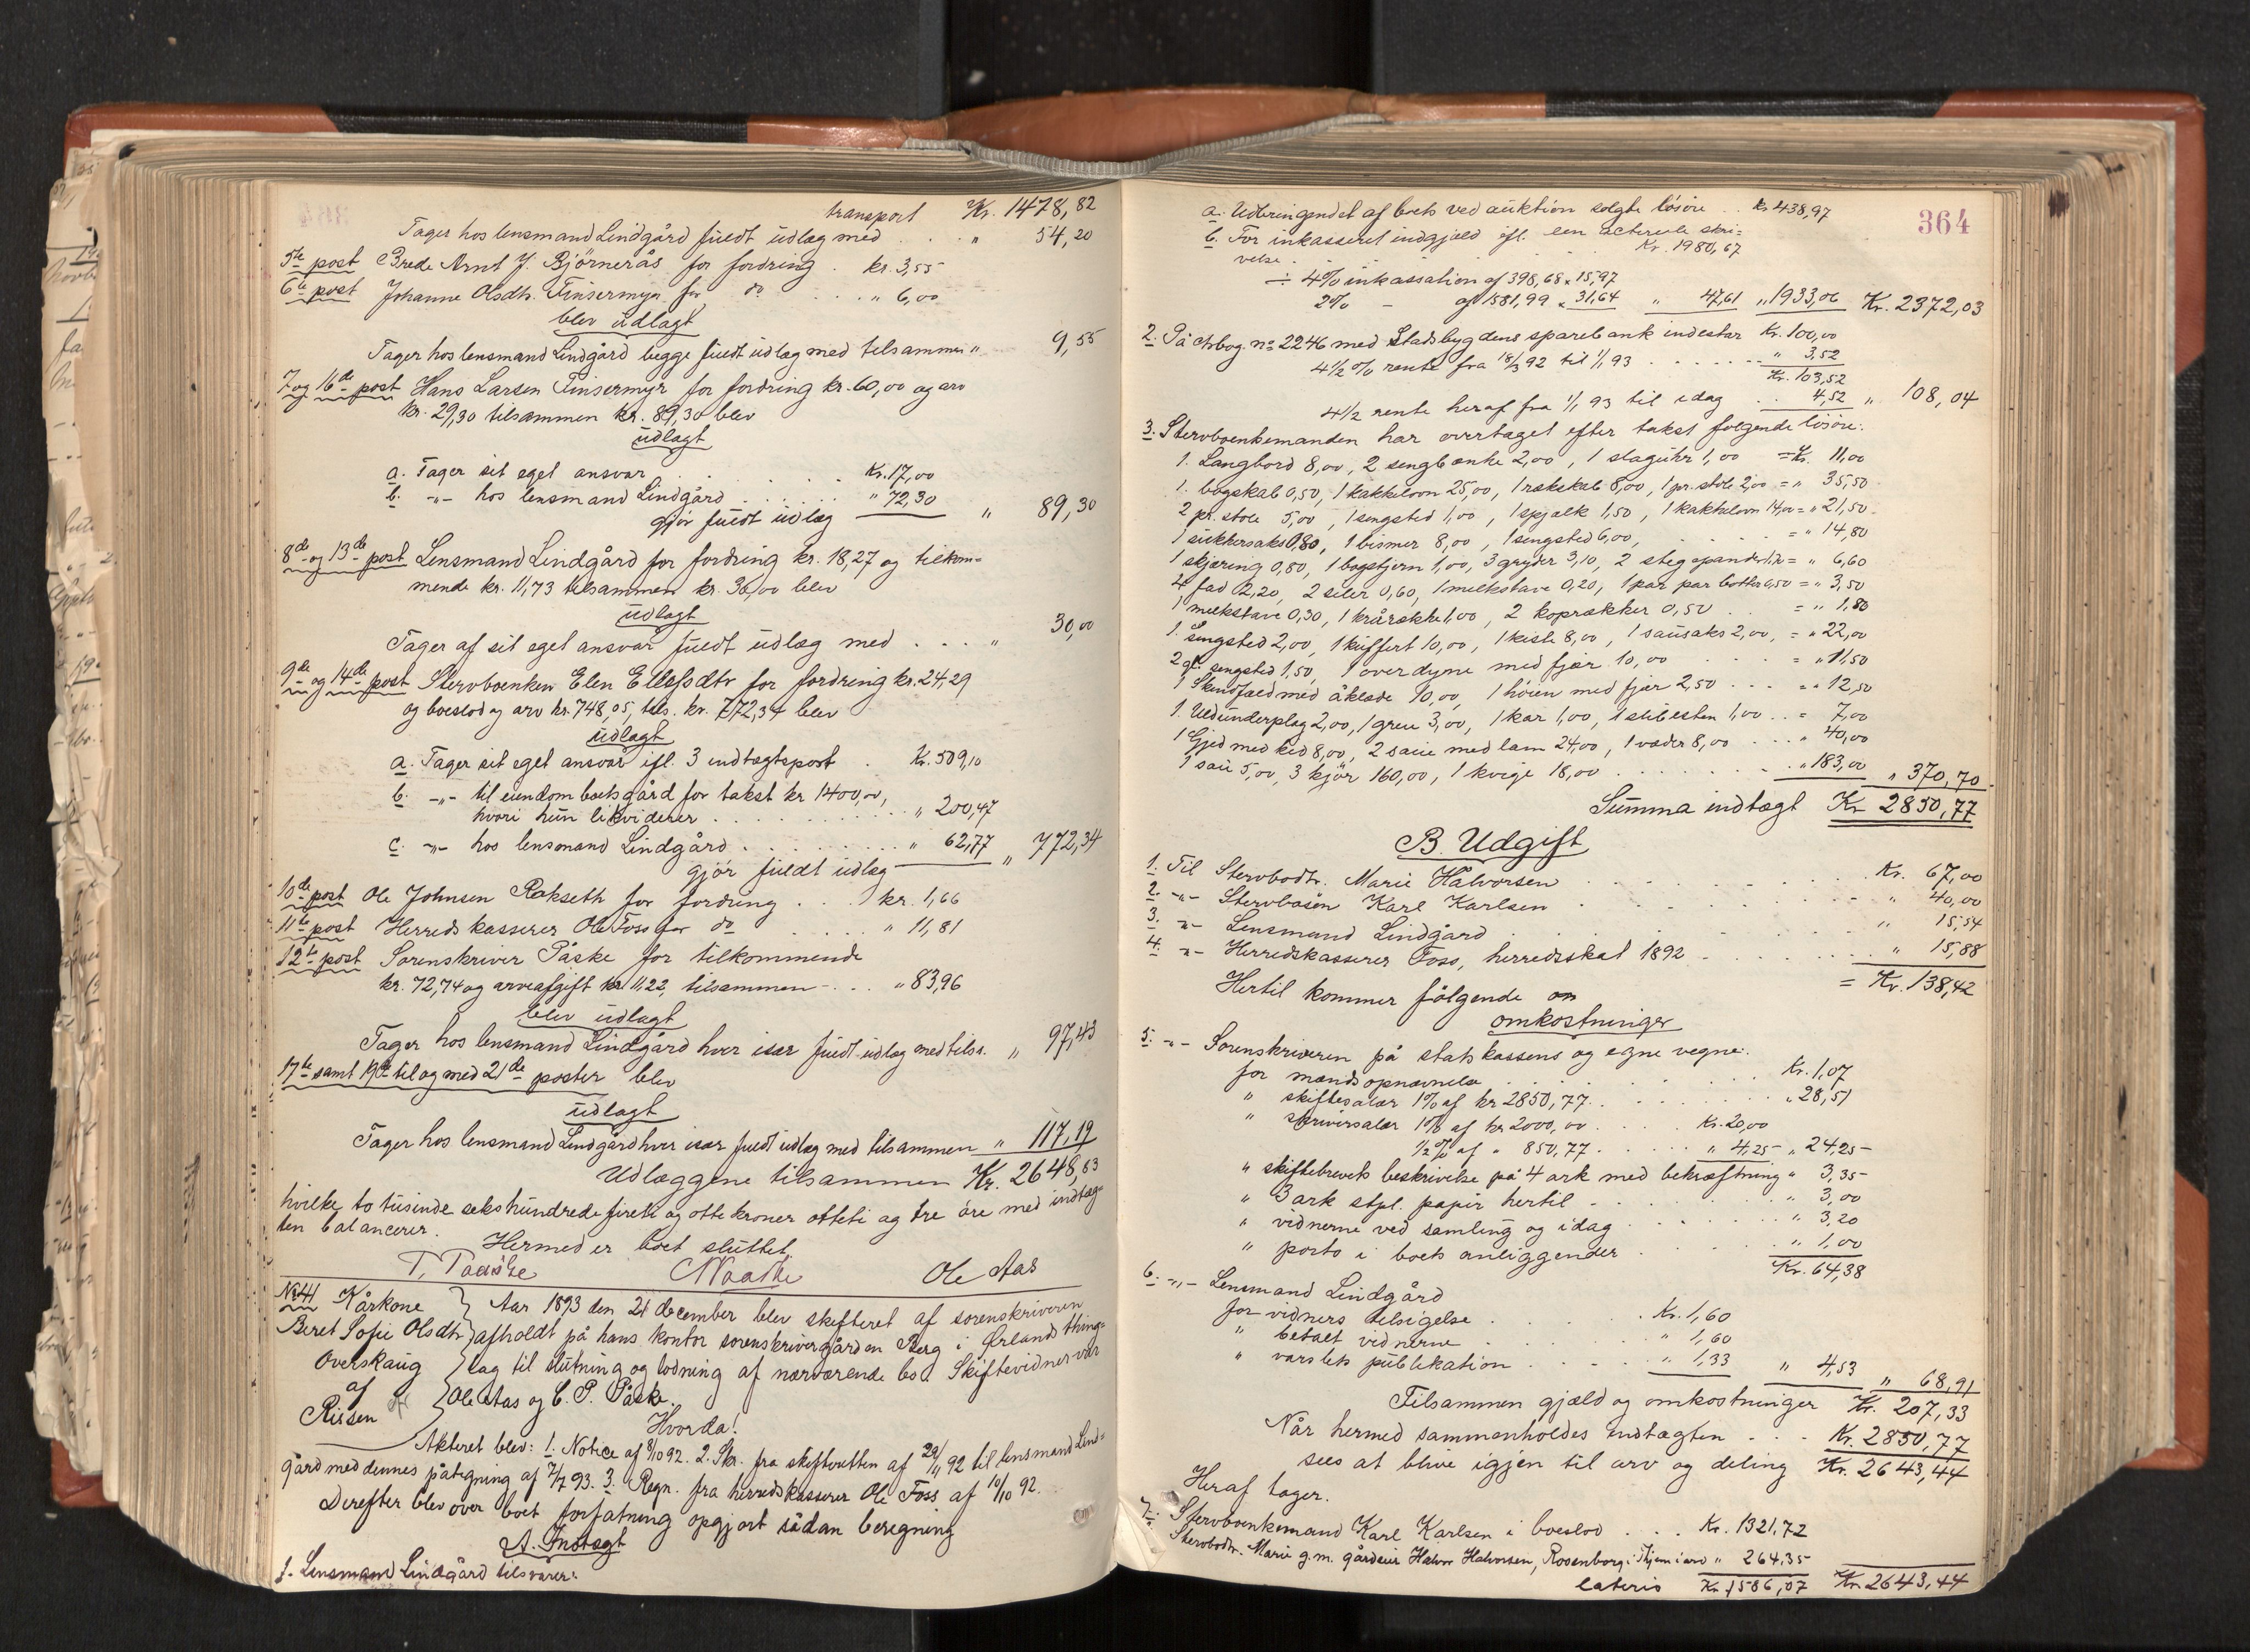 transport Kr. 1478,82
Tager hos lensmand Lindgård fuldt udlæg med . . . " 54,20
5te post Brede Arnt J. Bjørnerås for fordring . kr. 3,55
6te post Johanne Olsdtr. Finsermyr for do . . . " 6,00
blev udlagt
Tager hos lensmand Lindgård begge fuldt udlæg med tilsammen " 9,55
7 og 16de post Hans Larsen Finsermyr for fordring kr. 60,00 og arv
kr. 29,30 tilsammen kr. 89,30 blev
udlagt
a. Tager sit eget ansvar . . . . Kr. 17,00
b. -"- hos lensmand Lindgård . . . . . " 72,30
gjør fuldt udlæg " 89,30
8de og 13de post Lensmand Lindgård for fordring kr. 18,27 og tilkom=
mende kr. 11,73 tilsammen kr. 30,00 blev
udlagt
Tager af sit eget ansvar fuldt udlæg med . . . " 30,00
9de og 14de post Stervboenken Elen Ellefsdtr for fordring kr. 24,29
og boeslod og arv kr. 748,05, tils. kr. 772,34 blev
udlagt
a. Tager sit eget ansvar ifl. 3 indtægtspost . Kr. 509,10
b. -"- til eiendom boets gård for takst kr 1400,00,
hvori hun likviderer . . . . . . " 200,47
c. -"- hos lensmand Lindgård . . . . . . " 62,77
gjør fuldt udlæg " 772,34
10de post Ole Johnsen Rakseth for fordring . . . kr. 1,66
11te post Herredskasserer Ole Foss for do . . . . . " 11,81
12te post Sorenskriver Påske for tilkommende
kr. 72,74 og arveafgift kr. 11,22, tilsammen . . . " 83,96
blev udlagt
Tager hos lensmand Lindgård hver især fuldt udlæg med tils. " 97,43
17te samt 19de til og med 21de poster blev
udlagt
Tager hos lensmand Lindgård hver især fuldt udlæg med tilsammen " 117,19
Udlæggene tilsammen Kr. 2648,83
hvilke to tusinde sekshundrede firetti og otte kroner ottetti og tre øre med indtæg=
ten balancerer.
Hermed er boet sluttet.
T. Paaske Ole Aas
No 41 Kårkone
Beret Sofie Olsdtr
Overskaug
af
Rissen
Aar 1893 den 21 december blev skifteret af sorenskriveren
afholdt på hans kontor sorenskrivergården Berg i Ørlands thing=
lag til slutning og lodning af nærværende bo. Skiftevidner var
Ole Aas og C. P. Påske.
Hvorda!
Akteret blev: 1. Notice af 8/10 92. 2. Skr. fra skifteretten af 29/11 92 til lensmand Lind=
gård med dennes påtegning af 7/7 93. 3. Regn. fra herredskasserer Ole Foss af 10/10 92.
Derefter blev over boet forfatning opgjort sådan beregning
A. Indtægt
1. Lensmand Lindgård tilsvarer:
364
a. Udbringendet af boets ved auktion solgte løsøre . . kr 438,97
b. For inkasseret indgjæld ifl. den acterede skri=
velse . . . Kr. 1980,67
÷ 4% inkassation af 398,68 " 15,97
2% - af 1581,99 " 31,64 " 47,61 " 1933,06 Kr. 2372,03
2. På ctrbog. no 2246 med Stadsbygdens sparebank indestår Kr. 100,00
4½% rente fra 18/3 92 til 1/1 93 . . . . . " 3,52
Kr. 103,52
4½ rente heraf fra 1/1 93 til idag . . 4,52 " 108,04
3. Stervboenkemanden har overtaget efter takst følgende løsøre:
1. Langbord 8,00, 2 sengbænke 2,00, 1 slaguhr 1,00 = Kr. 11,00
1. bogskab 0,50, 1 kakkelovn 25,00, 1 rækskab 8,00, 1 pr. stole 2,00 = " 35,50
2 pr. stole 5,00, 1 sengsted 1,00, 1 spjælk 1,50, 1 kakkelovn 14,00 = " 21,50
1 sukkersaks 0,80, 1 bismer 8,00, 1 sengsted 6,00, . . . = " 14,80
1 skjæring 0,80, 1 bagstjern 1,00, 3 gryder 3,10, 2 stegspander = " 6,60
4 fad 2,20, 2 siler 0,60, 1 melkstave 0,20, 1 par par bøtter 0,50 = " 3,50
1 melkstave 0,30, 1 krårække 1,00, 2 koprækker 0,50 . . = " 1,80
1. sengsted 2,00, 1 kuffert 10,00, 1 kiste 8,00, 1 sausaks 2,00, = " 22,00
2 gl. sengsted 1,50, 1 overdyne med fjær 10,00 . . . = " 11,50
1 Skindfæld med åklæde 10,00, 1 høien med fjær 2,50 . . . = " 12,50
1. Uldunderplag 2,00, 1 greu 3,00, 1 kar 1,00, 1 slibesten 1,00 . . = 7,00
1 Gjed med kid 8,00, 2 saue med lam 24,00, 1 væder 8,00 . . . " 40,00
1 sau 5,00, 3 kjør 160,00, 1 kvige 18,00 . . . . . . . " 183,00 " 370,70
Summa indtægt Kr 2850,77
B. Udgift
1. Til Stervbodtr. Marie Halvorsen . . . . . Kr. 67,00
2. -"- Stervbosøn Karl Karlsen . . . . . " 40,00
3. -"- Lensmand Lindgård . . . . . " 15,54
4. -"- Herredskasserer Foss, herredsskat 1892 . . . . " 15,88
= Kr. 138,42
Hertil kommer følgende om
omkostninger
5. -"- Sorenskriveren på statskassens og egne vegne:
for mændsopnævnelse . . . . . Kr. 1,07
" skiftesalær 1% af kr 2850,77 . . . . . " 28,51
" skriversalær 1% af kr 2000,00 . . . . Kr. 20,00
½% af " 850,77 . . . . " 4,25 " 24,25
" skiftebrevets beskrivelse på 4 ark med bekræftning " 3,35
" 3 ark stpl. papir hertil . . . . . " 3,00
" vidnerne ved samling og idag . . . . . " 3,20
" porto i boets anliggender . . . . " 1,00
Kr. 64,38
6. -"- Lensmand Lindgård
for vidners tilsigelse . . . . . Kr. 1,60
" betalt vidnerne . . . . . " 1,60
" varslets publikation . . . . " 1,33 " 4,53 " 68,91
Tilsammen gjæld og omkostninger Kr. 207,33
Når hermed sammenholdes indtægten . . . Kr. 2850,77
sees at blive igjen til arv og deling Kr. 2643,44
Heraf tager.
7. Stervboenkemand Karl Karlsen i boeslod . . . Kr. 1321,72
Stervbodtr. Marie g.m. gårdeier Halvor Halvorsen, Rosenborg, i Hjem i arv " 264,35
lateris Kr. 1586,07 Kr. 2643,44